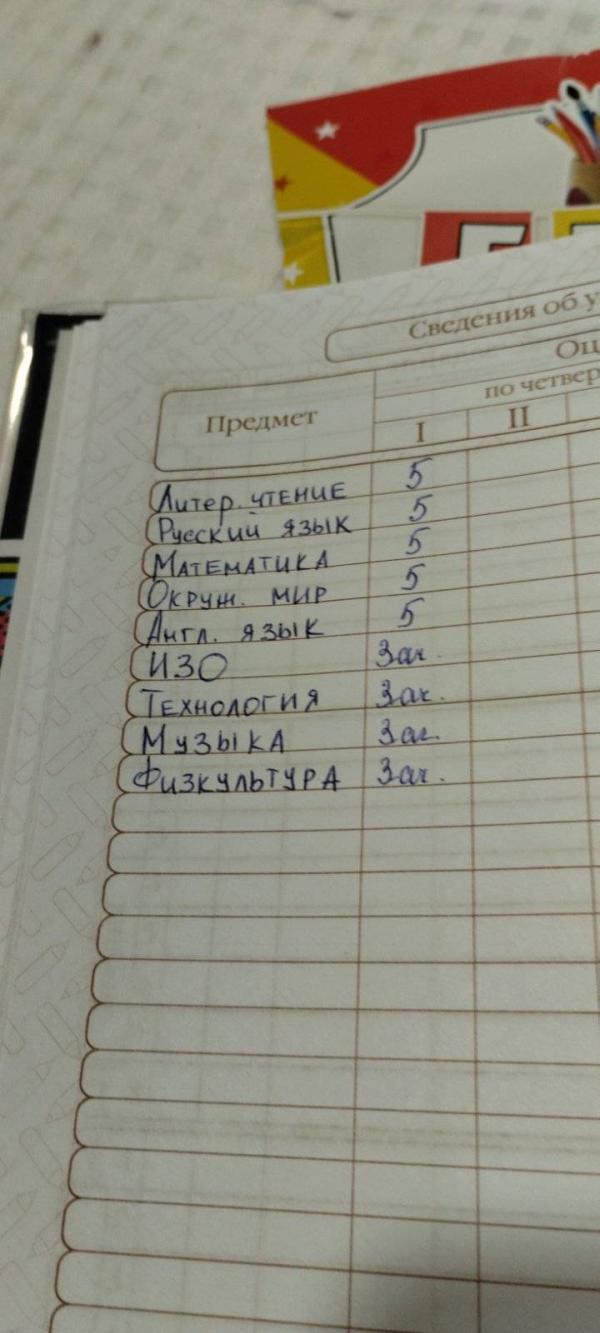 Сведения об у
Оц
по четвер
Предмет
I II
Литер. чтение 5
Русский язык 5
Математика 5
Окруж. мир 5
Англ. язык 5
ИЗО Зач.
Технология Зач.
Музыка Зач.
Физкультура Зач.